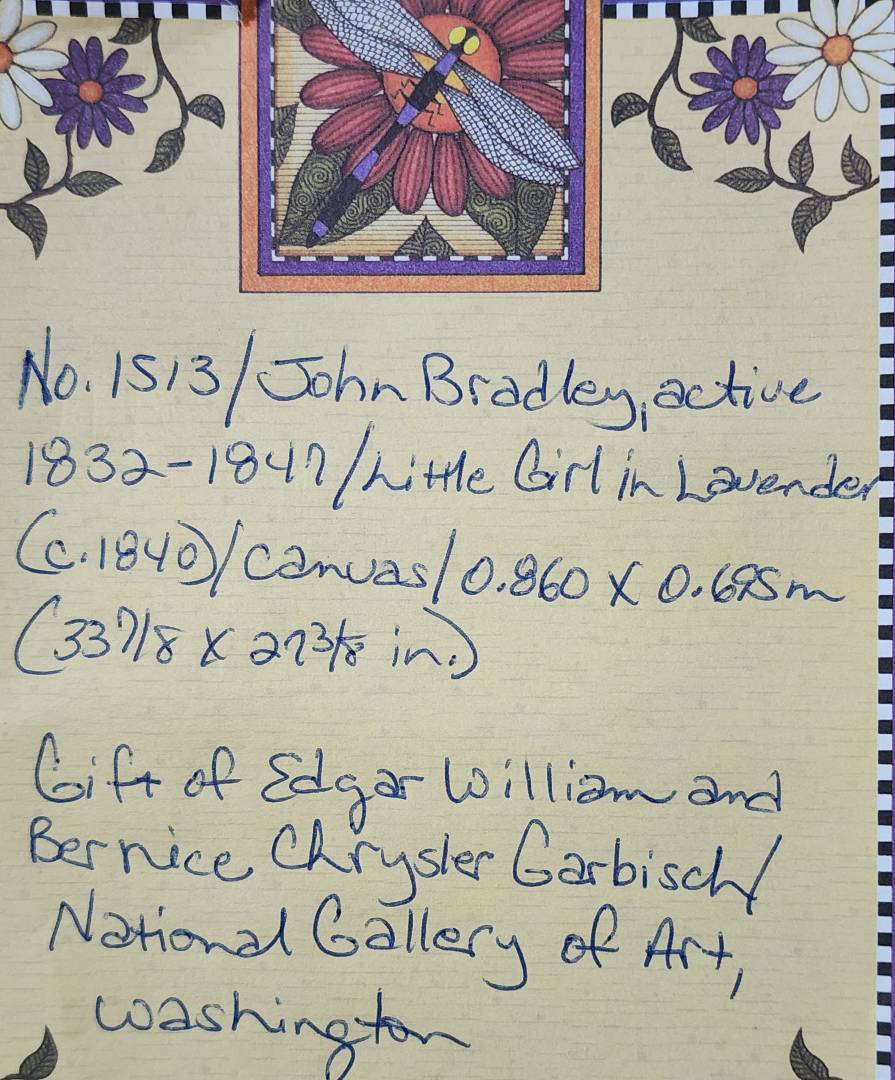 No. 1513/John Bradley, active
1832-1847/Little Girl in Lavender
(c.1840)/canvas/0.860 X 0.695m
(33 7/8 X 27 3/8 in.)
Gift of Edgar William and
Bernice Chrysler Garbisch/
National Gallery of Art,
Washington